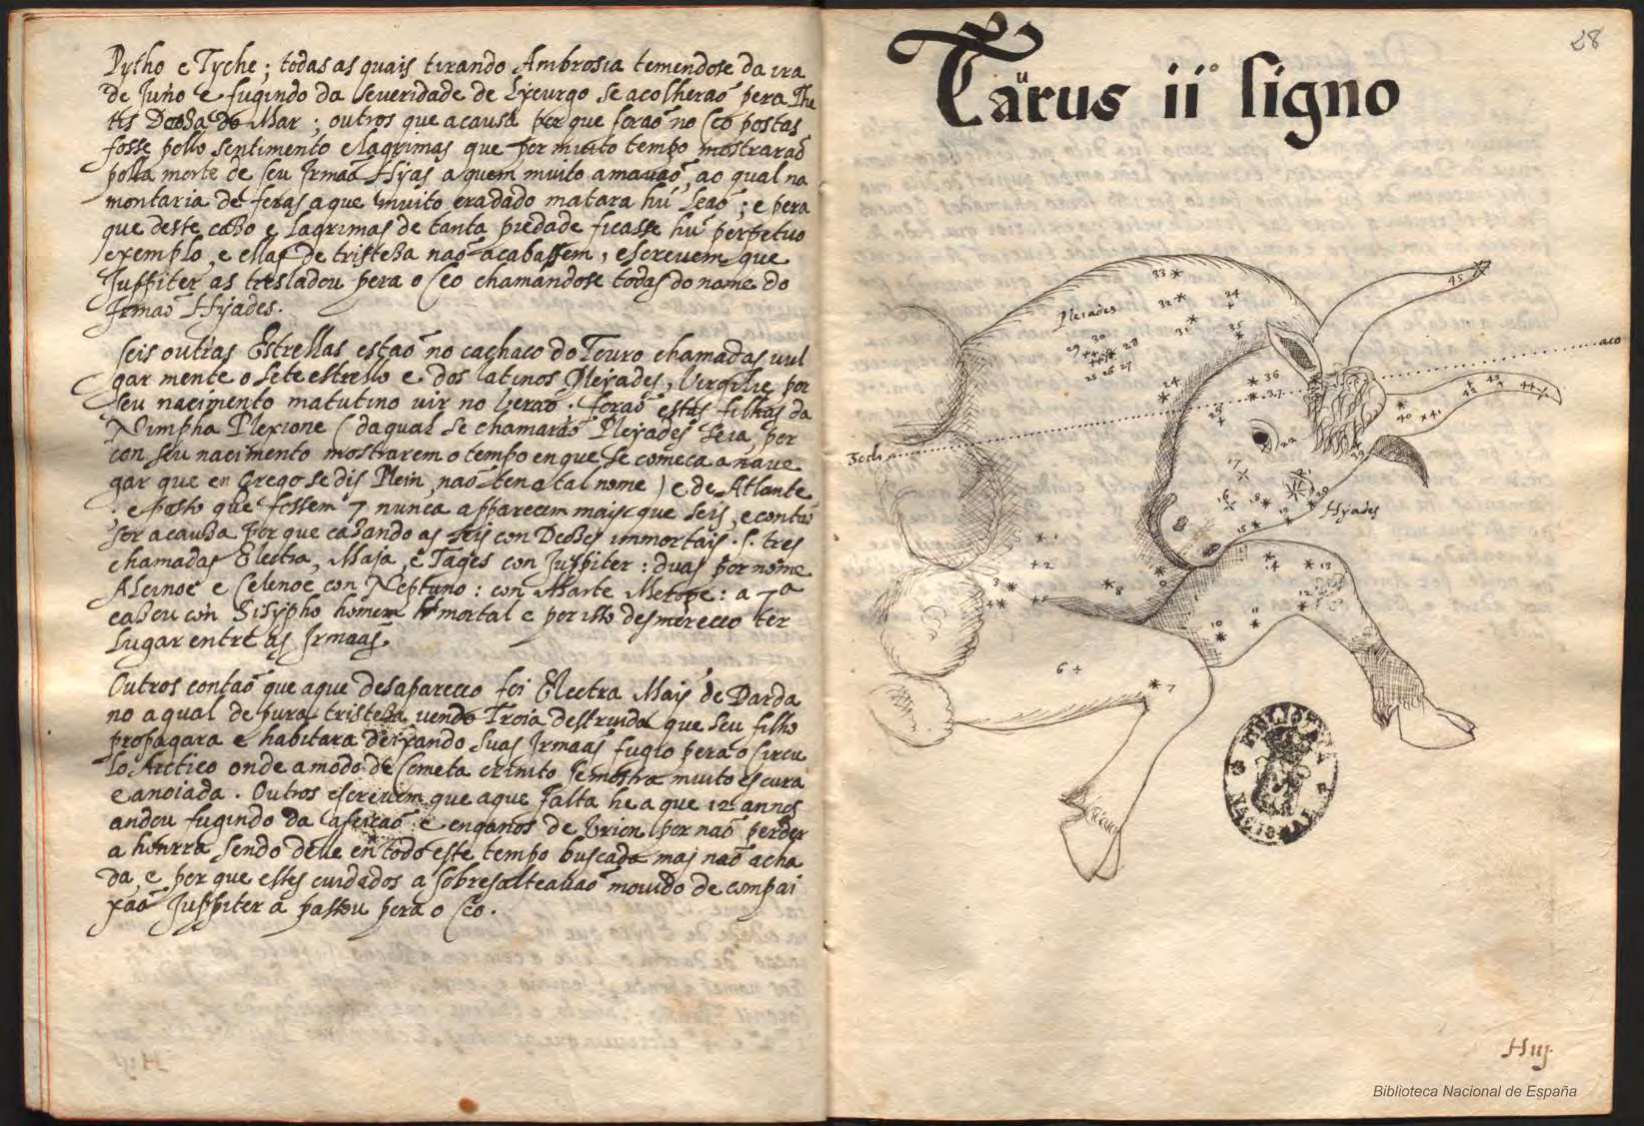 Pytho e Tyche; todas as quais tirando Ambrosia temendose da ira
de Juno e fugindo da severidade de Lycurgo se acolheraõ pera The
tis Deosa do Mar; outros que a causa por que foraõ no Ceo postas
fosse pollo sentimento e lagrimas que por muito tempo mostraraõ
polla morte de seu Irmaõ Hyas a quem muito amauaõ, ao qual na
montaria de feras a que muito eradado matara hũ Leaõ; e pera
que deste caso e lagrimas de tanta piedade ficasse hũ perpetuo
exemplo, e ellas de tristesa naõ acabassem, escreuem que
Juppiter as tresladou pera o Ceo chamandose todas do nome do
Irmaõ Hyades.
Seis outras Estrellas estaõ no cachaco do Touro chamadas uul
gar mente o sete estrello e dos latinos Pleyades, Virgilie por
seu nacimento matutino uir no Veraõ. foraõ estas filhas da
Nimpha Plexione (da qual se chamaraõ Pleyades seia, por
con seu nacimento mostrarem o tempo en que se comeca a naue
gar que en Grego se dis Plein, naõ ten a tal nome) e de Atlante
e posto que fossem 7 nunca apparecem mais que seis, e contaõ
ser a causa por que casando as seis con Deoses immortais .s. tres
chamadas Electra, Maja, e Tages con Juppiter: duas por nome
Alcinoe e Celinoe con Neptuno: con Marte Metope: a 7ª
casou con Sisypho homem mortal e por isso desmereceo ter
lugar entre as Irmaãs.
Outros contaõ que a que desapareceo foi Electra Mais de Darda
no a qual de pura tristesa uendo Troia destruida que seu filho
propagara e habitara deixando suas Irmaas fugio pera o Circu
lo Arctico onde a modo de Cometa crinito se mostra muito escura
e anoiada. Outros escreuem que a que falta he a que 12 annos
andou fugindo da afeicaõ e enganos de Orion por naõ perder
a honrra sendo dele en todo este tempo buscada mas naõ acha
da, e por que estes cuidados a sobresalteauaõ mouido de compai
xaõ Juppiter a passou pera o Ceo.
28
Taurus ii° signo
33
32
34
31
35
Pleiades
29 30
28
25 26 27
24
36
37
23
22
45
44
43
42
40 41
39
17
16
18
15
19
20
Hyades
1
2
3
4
5
8
9
14
13
12
11
10
6
7
BIBLIOTECA NACIONAL
Hiiij.
Biblioteca Nacional de España